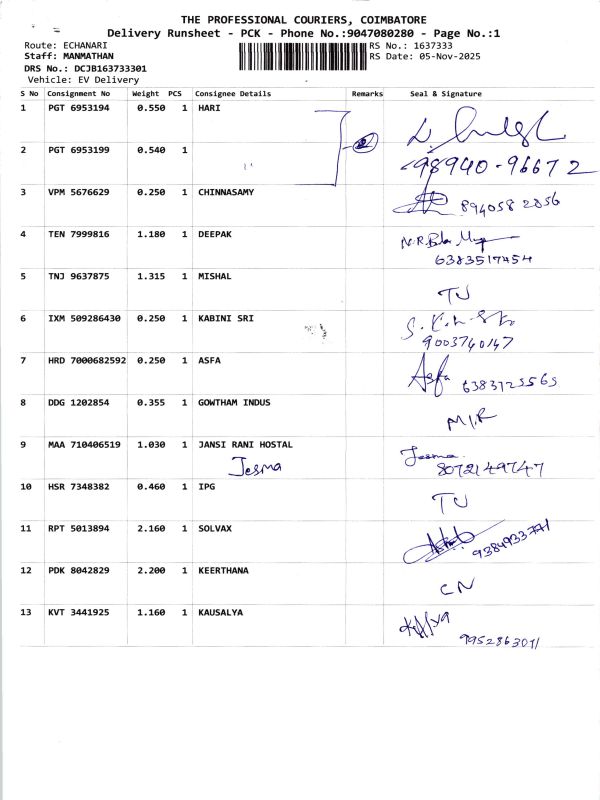 THE PROFESSIONAL COURIERS, COIMBATORE
Delivery Runsheet - PCK - Phone No.:9047080280 - Page No.:1
Route: ECHANARI
Staff: MANMATHAN
DRS No.: DCJB163733301
Vehicle: EV Delivery
RS No.: 1637333
RS Date: 05-Nov-2025
S No Consignment No Weight PCS Consignee Details Remarks Seal & Signature
1 PGT 6953194 0.550 1 HARI
2 PGT 6953199 0.540 1
98940-96672
3 VPM 5676629 0.250 1 CHINNASAMY
8940582856
4 TEN 7999816 1.180 1 DEEPAK
6383517454
5 TNJ 9637875 1.315 1 MISHAL
TU
6 IXM 509286430 0.250 1 KABINI SRI
9003740147
7 HRD 7000682592 0.250 1 ASFA
Asfa 6383125565
8 DDG 1202854 0.355 1 GOWTHAM INDUS
M/R
9 MAA 710406519 1.030 1 JANSI RANI HOSTAL
Jesma Jesma
8072149747
10 HSR 7348382 0.460 1 IPG
TU
11 RPT 5013894 2.160 1 SOLVAX
9384933771
12 PDK 8042829 2.200 1 KEERTHANA
CN
13 KVT 3441925 1.160 1 KAUSALYA
9952863071